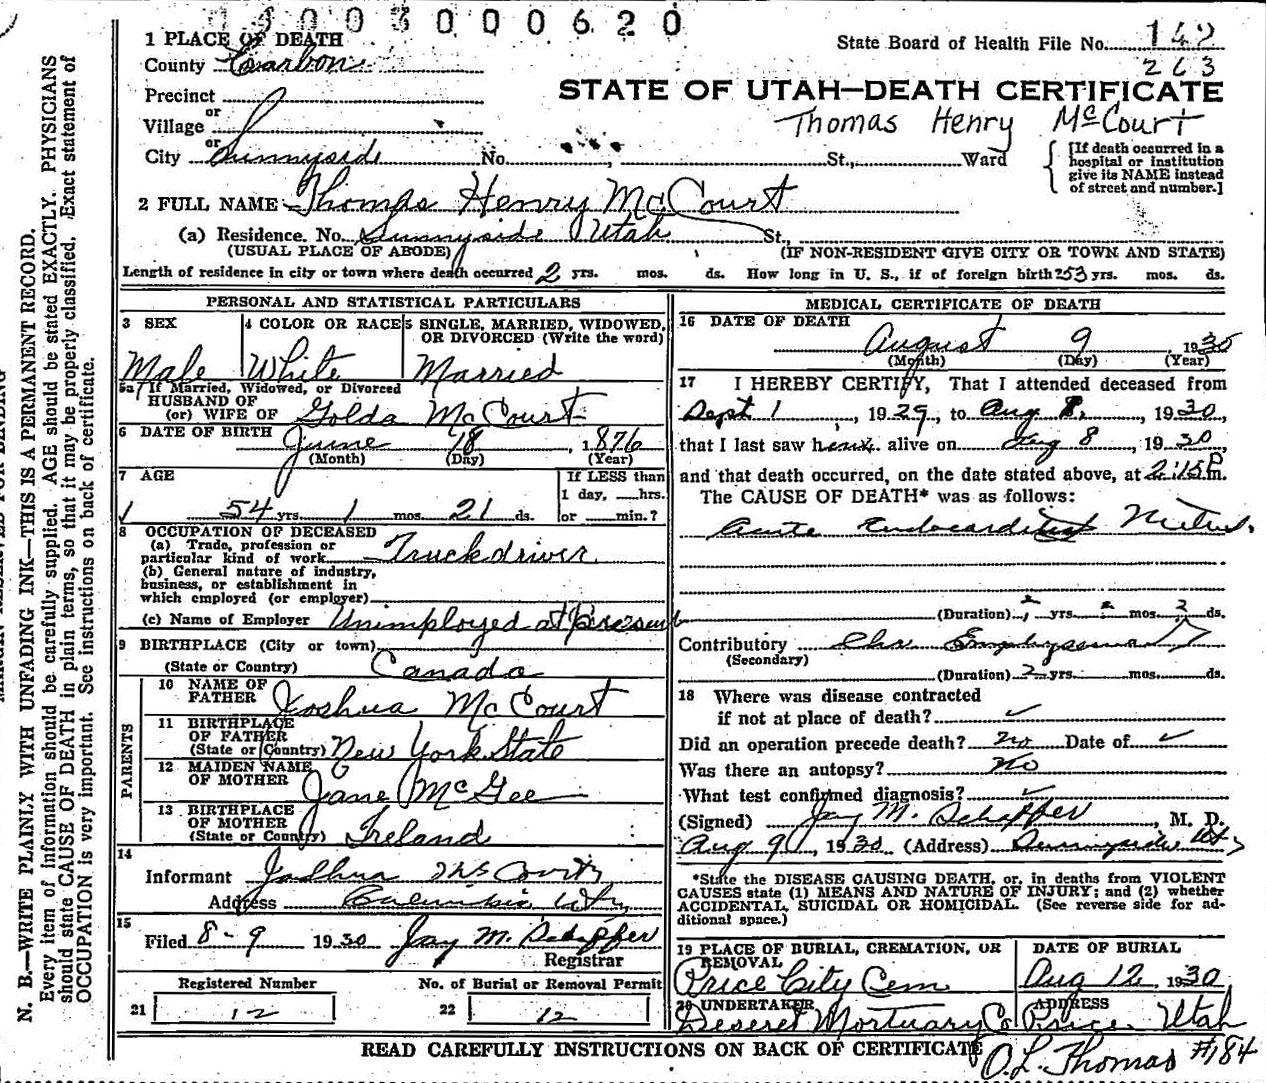 3000620
1 PLACE OF DEATH
County Carbon
State Board of Health File No. 142
263
Precinct
or
Village
or
City Sunnyside No. , St., Ward
STATE OF UTAH—DEATH CERTIFICATE
Thomas Henry McCourt
[If death occurred in a
hospital or institution
give its NAME instead
of street and number.]
2 FULL NAME Thomas Henry McCourt
(a) Residence. No. Sunnyside Utah St.,
(USUAL PLACE OF ABODE) (IF NON-RESIDENT GIVE CITY OR TOWN AND STATE)
Length of residence in city or town where death occurred 2 yrs. mos. ds. How long in U. S., if of foreign birth? 53 yrs. mos. ds.
PERSONAL AND STATISTICAL PARTICULARS
3 SEX
Male
4 COLOR OR RACE
White
5 SINGLE, MARRIED, WIDOWED,
OR DIVORCED (Write the word)
Married
5a If Married, Widowed, or Divorced
HUSBAND OF
(or) WIFE OF Golda McCourt
6 DATE OF BIRTH June 18, 1876
(Month) (Day) (Year)
7 AGE
54 yrs. 1 mos. 21 ds.
If LESS than
1 day, hrs.
or min.?
8 OCCUPATION OF DECEASED
(a) Trade, profession or
particular kind of work Truckdriver
(b) General nature of industry,
business, or establishment in
which employed (or employer)
(c) Name of Employer Unimployed at Present
9 BIRTHPLACE (City or town)
(State or Country) Canada
PARENTS
10 NAME OF
FATHER Joshua McCourt
11 BIRTHPLACE
OF FATHER
(State or Country) New York State
12 MAIDEN NAME
OF MOTHER Jane McGee
13 BIRTHPLACE
OF MOTHER
(State or Country) Ireland
14
Informant Joshua McCourt
Address Columbia Utah
15
Filed 8-9 1930 Jay M. Schaffer
Registrar
Registered Number
21 12
No. of Burial or Removal Permit
22 12
MEDICAL CERTIFICATE OF DEATH
16 DATE OF DEATH
August 9, 1930
(Month) (Day) (Year)
17 I HEREBY CERTIFY, That I attended deceased from
Sept 1, 1929, to Aug 8, 1930,
that I last saw h alive on Aug 8, 1930
and that death occurred, on the date stated above, at 2:15 P m.
The CAUSE OF DEATH* was as follows:
Acute Endocarditis
(Duration) yrs. mos. 2 ds.
Contributory Chr Emphysema
(Secondary)
(Duration) 2 yrs. mos. ds.
18 Where was disease contracted
if not at place of death?
Did an operation precede death? No Date of
Was there an autopsy? No
What test confirmed diagnosis?
(Signed) Jay M. Schaffer, M. D.
Aug 9, 1930 (Address) Sunnyside Ut
*State the DISEASE CAUSING DEATH, or, in deaths from VIOLENT
CAUSES state (1) MEANS AND NATURE OF INJURY; and (2) whether
ACCIDENTAL, SUICIDAL OR HOMICIDAL. (See reverse side for ad-
ditional space.)
19 PLACE OF BURIAL, CREMATION, OR
REMOVAL
Price City Cem
DATE OF BURIAL
Aug 12, 1930
20 UNDERTAKER
Deseret Mortuary Co
ADDRESS
Price Utah
READ CAREFULLY INSTRUCTIONS ON BACK OF CERTIFICATE
O.L. Thomas #184
N. B.—WRITE PLAINLY WITH UNFADING INK—THIS IS A PERMANENT RECORD.
Every item of information should be carefully supplied. AGE should be stated EXACTLY. PHYSICIANS
should state CAUSE OF DEATH in plain terms, so that it may be properly classified. Exact statement of
OCCUPATION is very important. See instructions on back of certificate.